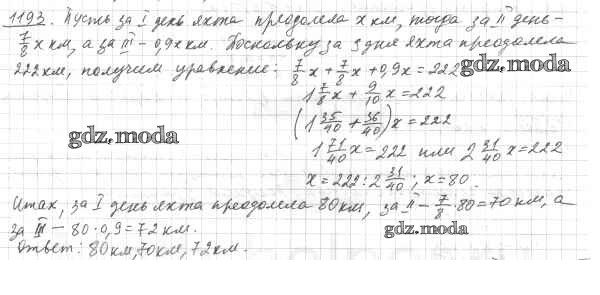 1193. Пусть за I день яхта преодолела x км, тогда за II день –
7/8 x км, а за III – 0,9x км. Поскольку за 3 дня яхта преодолела
222 км, получим уравнение: 7/8 x + 7/8 x + 0,9x = 222
gdz.moda
1 7/8 x + 9/10 x = 222
(1 35/40 + 36/40) x = 222
gdz.moda
1 71/40 x = 222 или 2 31/40 x = 222
x = 222 : 2 31/40 ; x = 80.
Итак, за I день яхта преодолела 80 км, за II – 7/8 · 80 = 70 км, а
за III – 80 · 0,9 = 72 км.
gdz.moda
Ответ: 80 км, 70 км, 72 км.